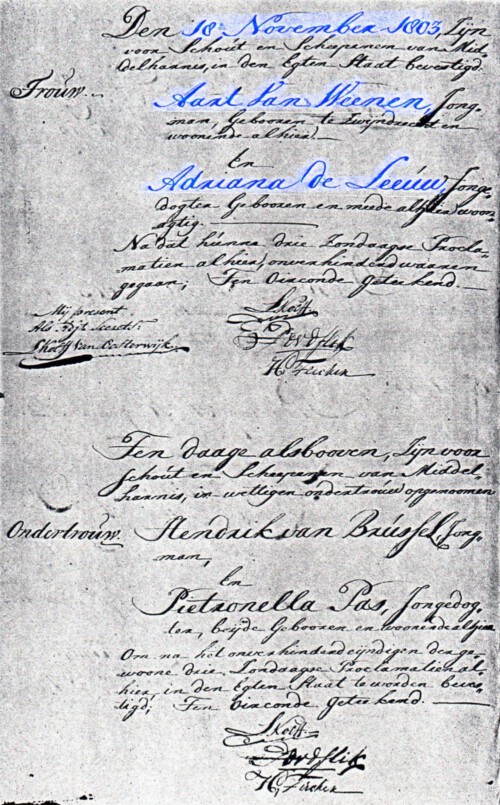 Den 18e November 1803, Zijn
voor Schout en Scheepenen van Mid
delharnis, in den Egten Staat bevestigd.
Trouw.
Aart Van Weenen, Jong-
man, Gebooren te Zwijndrecht en
woonende alhier.
En
Adriana de Leeuw, Jonge
dogter Gebooren en meede alhier woon-
agtig.
Na dat hiervna drie Zondaagse Procla-
matien alhier, onverhinderd waaren
gegaan; Ten Oirconde geteekend.
Mij present
Als
van Oosterwijk.
Kolff
H. Fischer
Ten daage als booven, Zijn voor
Schout en Scheepenen van Middel-
harnis, in wettigen ondertrouw opgenoomen
Ondertrouw.
Hendrik van Brussel, Jong-
man,
En
Pietronella Pas, Jongedog-
ter, beijde Gebooren en woonende alhier
Om na het onverhinderd eijndigen der ge-
woone drie Zondaagse Proclamatien al-
hier, in den Egten Staat te worden beves-
tigd; Ten Oirconde geteekend.
Kolff
H. Fischer